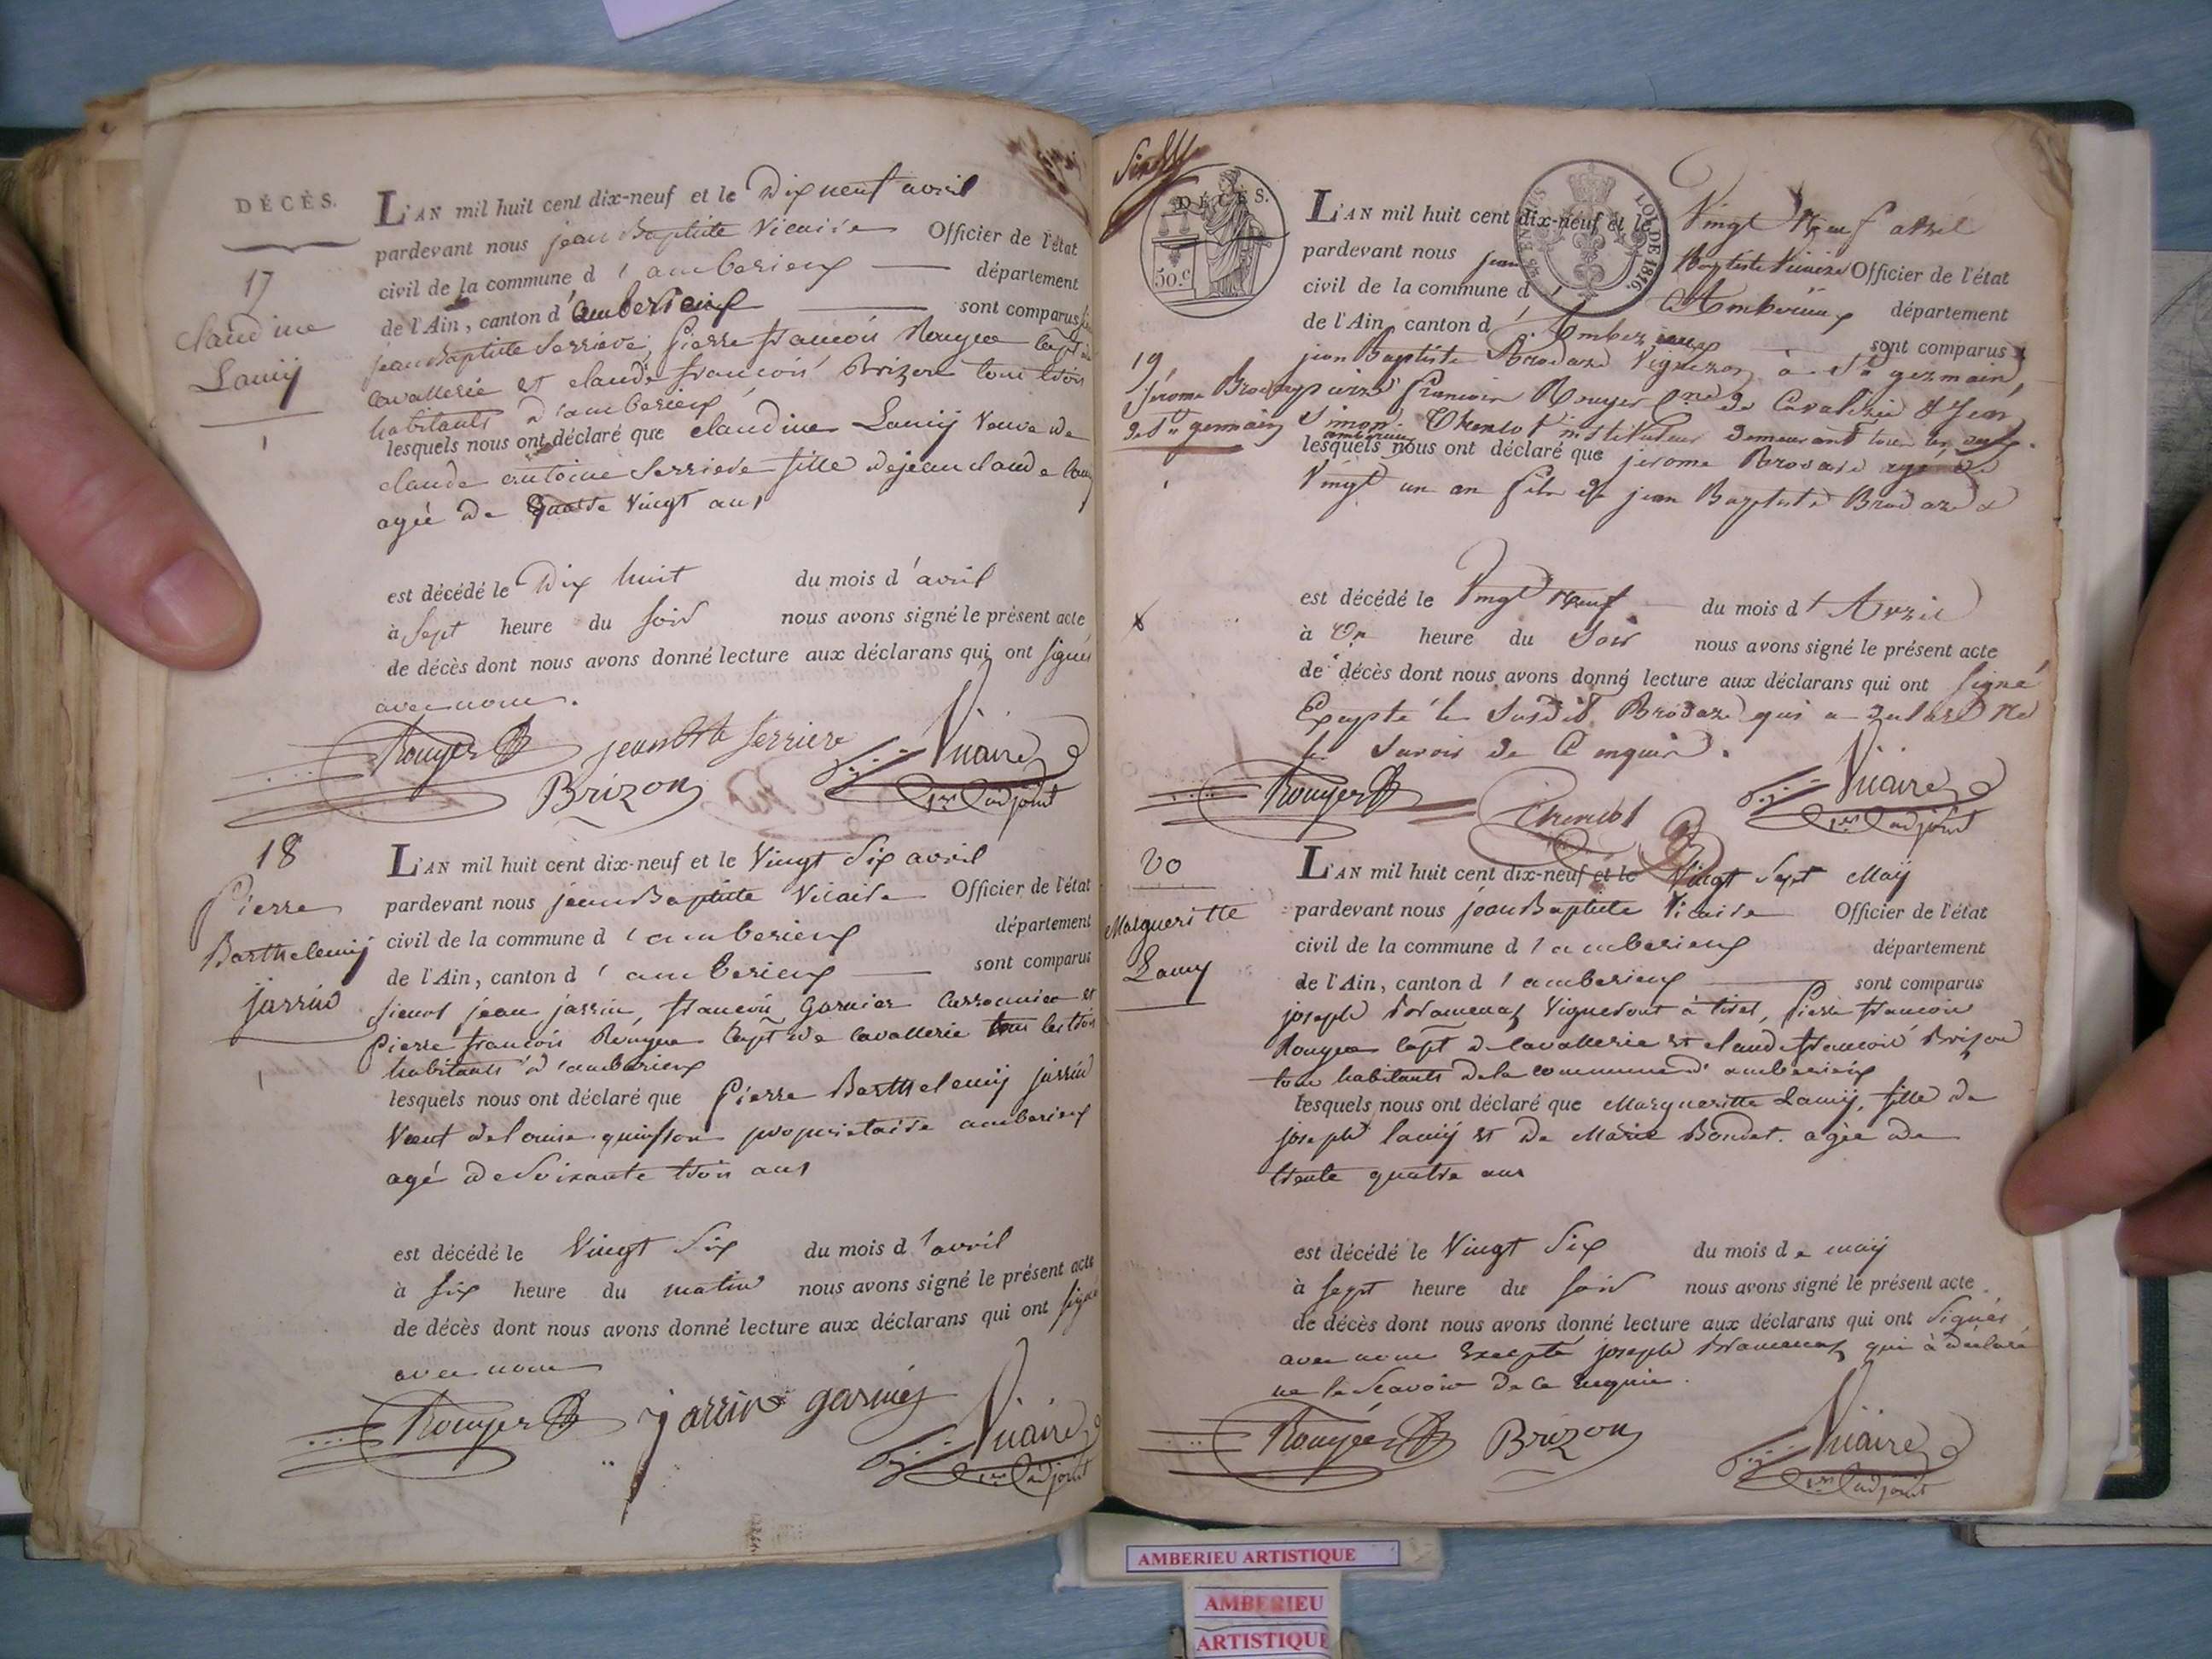 DÉCÈS.
17
Claudine
Lamÿ
L'AN mil huit cent dix-neuf et le Dix neuf avril
pardevant nous jean Baptiste Vicaire Officier de l'état
civil de la commune d'amberieux département
de l'Ain, canton d'amberieux sont comparus
jean Baptiste Serriere, Pierre francois Rouyer capt de
cavallerie et claude francois Brizon tous trois
habitants d'amberieux
lesquels nous ont déclaré que claudine Lamÿ veuve de
claude antoine Serriere fille de jean claude lamÿ
agée de Quatre vingt ans
est décédé le Dix huit du mois d'avril
à sept heure du soir nous avons signé le présent acte
de décès dont nous avons donné lecture aux déclarans qui ont signés
avec nous.
Rouyer jean Bte serriere Vicaire
Brizon 1er adjoint
18
Pierre
Barthelemÿ
jarrin
L'AN mil huit cent dix-neuf et le Vingt Six avril
pardevant nous jean Baptiste Vicaire Officier de l'état
civil de la commune d'amberieux département
de l'Ain, canton d'amberieux sont comparus
sieurs jean jarrin, francois Garnier et
Pierre francois Rouyer Capt de cavallerie tous les trois
habitants d'amberieux
lesquels nous ont déclaré que Pierre Barthelemÿ jarrin
veuf de louise quinson proprietaire amberieux
agé de Soixante trois ans
est décédé le Vingt Six du mois d'avril
à six heure du matin nous avons signé le présent acte
de décès dont nous avons donné lecture aux déclarans qui ont signé
avec nous
Rouyer jarrin garnier Vicaire
1er adjoint
DÉCÈS.
50.c
LOI DE 1816.
L'AN mil huit cent dix-neuf et le Vingt Neuf avril
pardevant nous jean Baptiste Vicaire Officier de l'état
civil de la commune d'Amberieux département
de l'Ain, canton d'Amberieux sont comparus
19
jerome Brodard
de St germain
jean Baptiste Brodard Vigneron à St germain,
pierre francois Rouyer Cne de Cavalerie & jean
Simon Thenlot instituteur demeurant tous les deux
amberieux
lesquels nous ont déclaré que jerome Brodard agé de
Vingt un an fils de jean Baptiste Brodard &
est décédé le Vingt Neuf du mois d'Avril
à Un heure du Soir nous avons signé le présent acte
de décès dont nous avons donné lecture aux déclarans qui ont signé
Excepté le Susdit Brodard qui a declaré Ne
le Savoir de Ce enquis.
Rouyer Vicaire
1er adjoint
20
Margueritte
Lamy
L'AN mil huit cent dix-neuf et le Vingt Sept Maÿ
pardevant nous jean Baptiste Vicaire Officier de l'état
civil de la commune d'amberieux département
de l'Ain, canton d'amberieux sont comparus
joseph Vigneront à tiret, Pierre francois
Rouyer Capt de Cavallerie et claude francois Brizon
tous habitants de la commune d'amberieux
lesquels nous ont déclaré que Margueritte Lamÿ, fille de
joseph lamÿ et de Marie Bondet. agée de
trente quatre ans
est décédé le Vingt Six du mois de maÿ
à sept heure du soir nous avons signé le présent acte
de décès dont nous avons donné lecture aux déclarans qui ont Signés
avec nous Excepté joseph qui à déclaré
ne le Scavoir de ce enquis.
Rouyer Brizon Vicaire
1er adjoint
AMBERIEU ARTISTIQUE
AMBERIEU
ARTISTIQUE